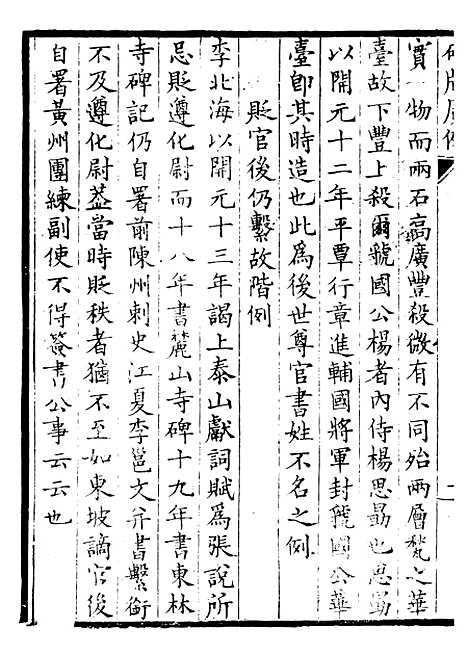 碑版廣例
實一物而兩石高廣豐殺微有不同殆兩層甃之華
臺故下豐上殺爾虢國公楊者內侍楊思勗也思勗
以開元十二年平覃行章進輔國將軍封虢國公華
臺卽其時造也此為後世尊官書姓不名之例
貶官後仍繫故階例
李北海以開元十三年謁上泰山獻詞賦為張說所
忌貶遵化尉而十八年書麓山寺碑十九年書東林
寺碑記仍自署前陳州刺史江夏李邕文并書繫銜
不及遵化尉葢當時貶秩者猶不至如東坡謫官後
自署黃州團練副使不得簽書公事云云也